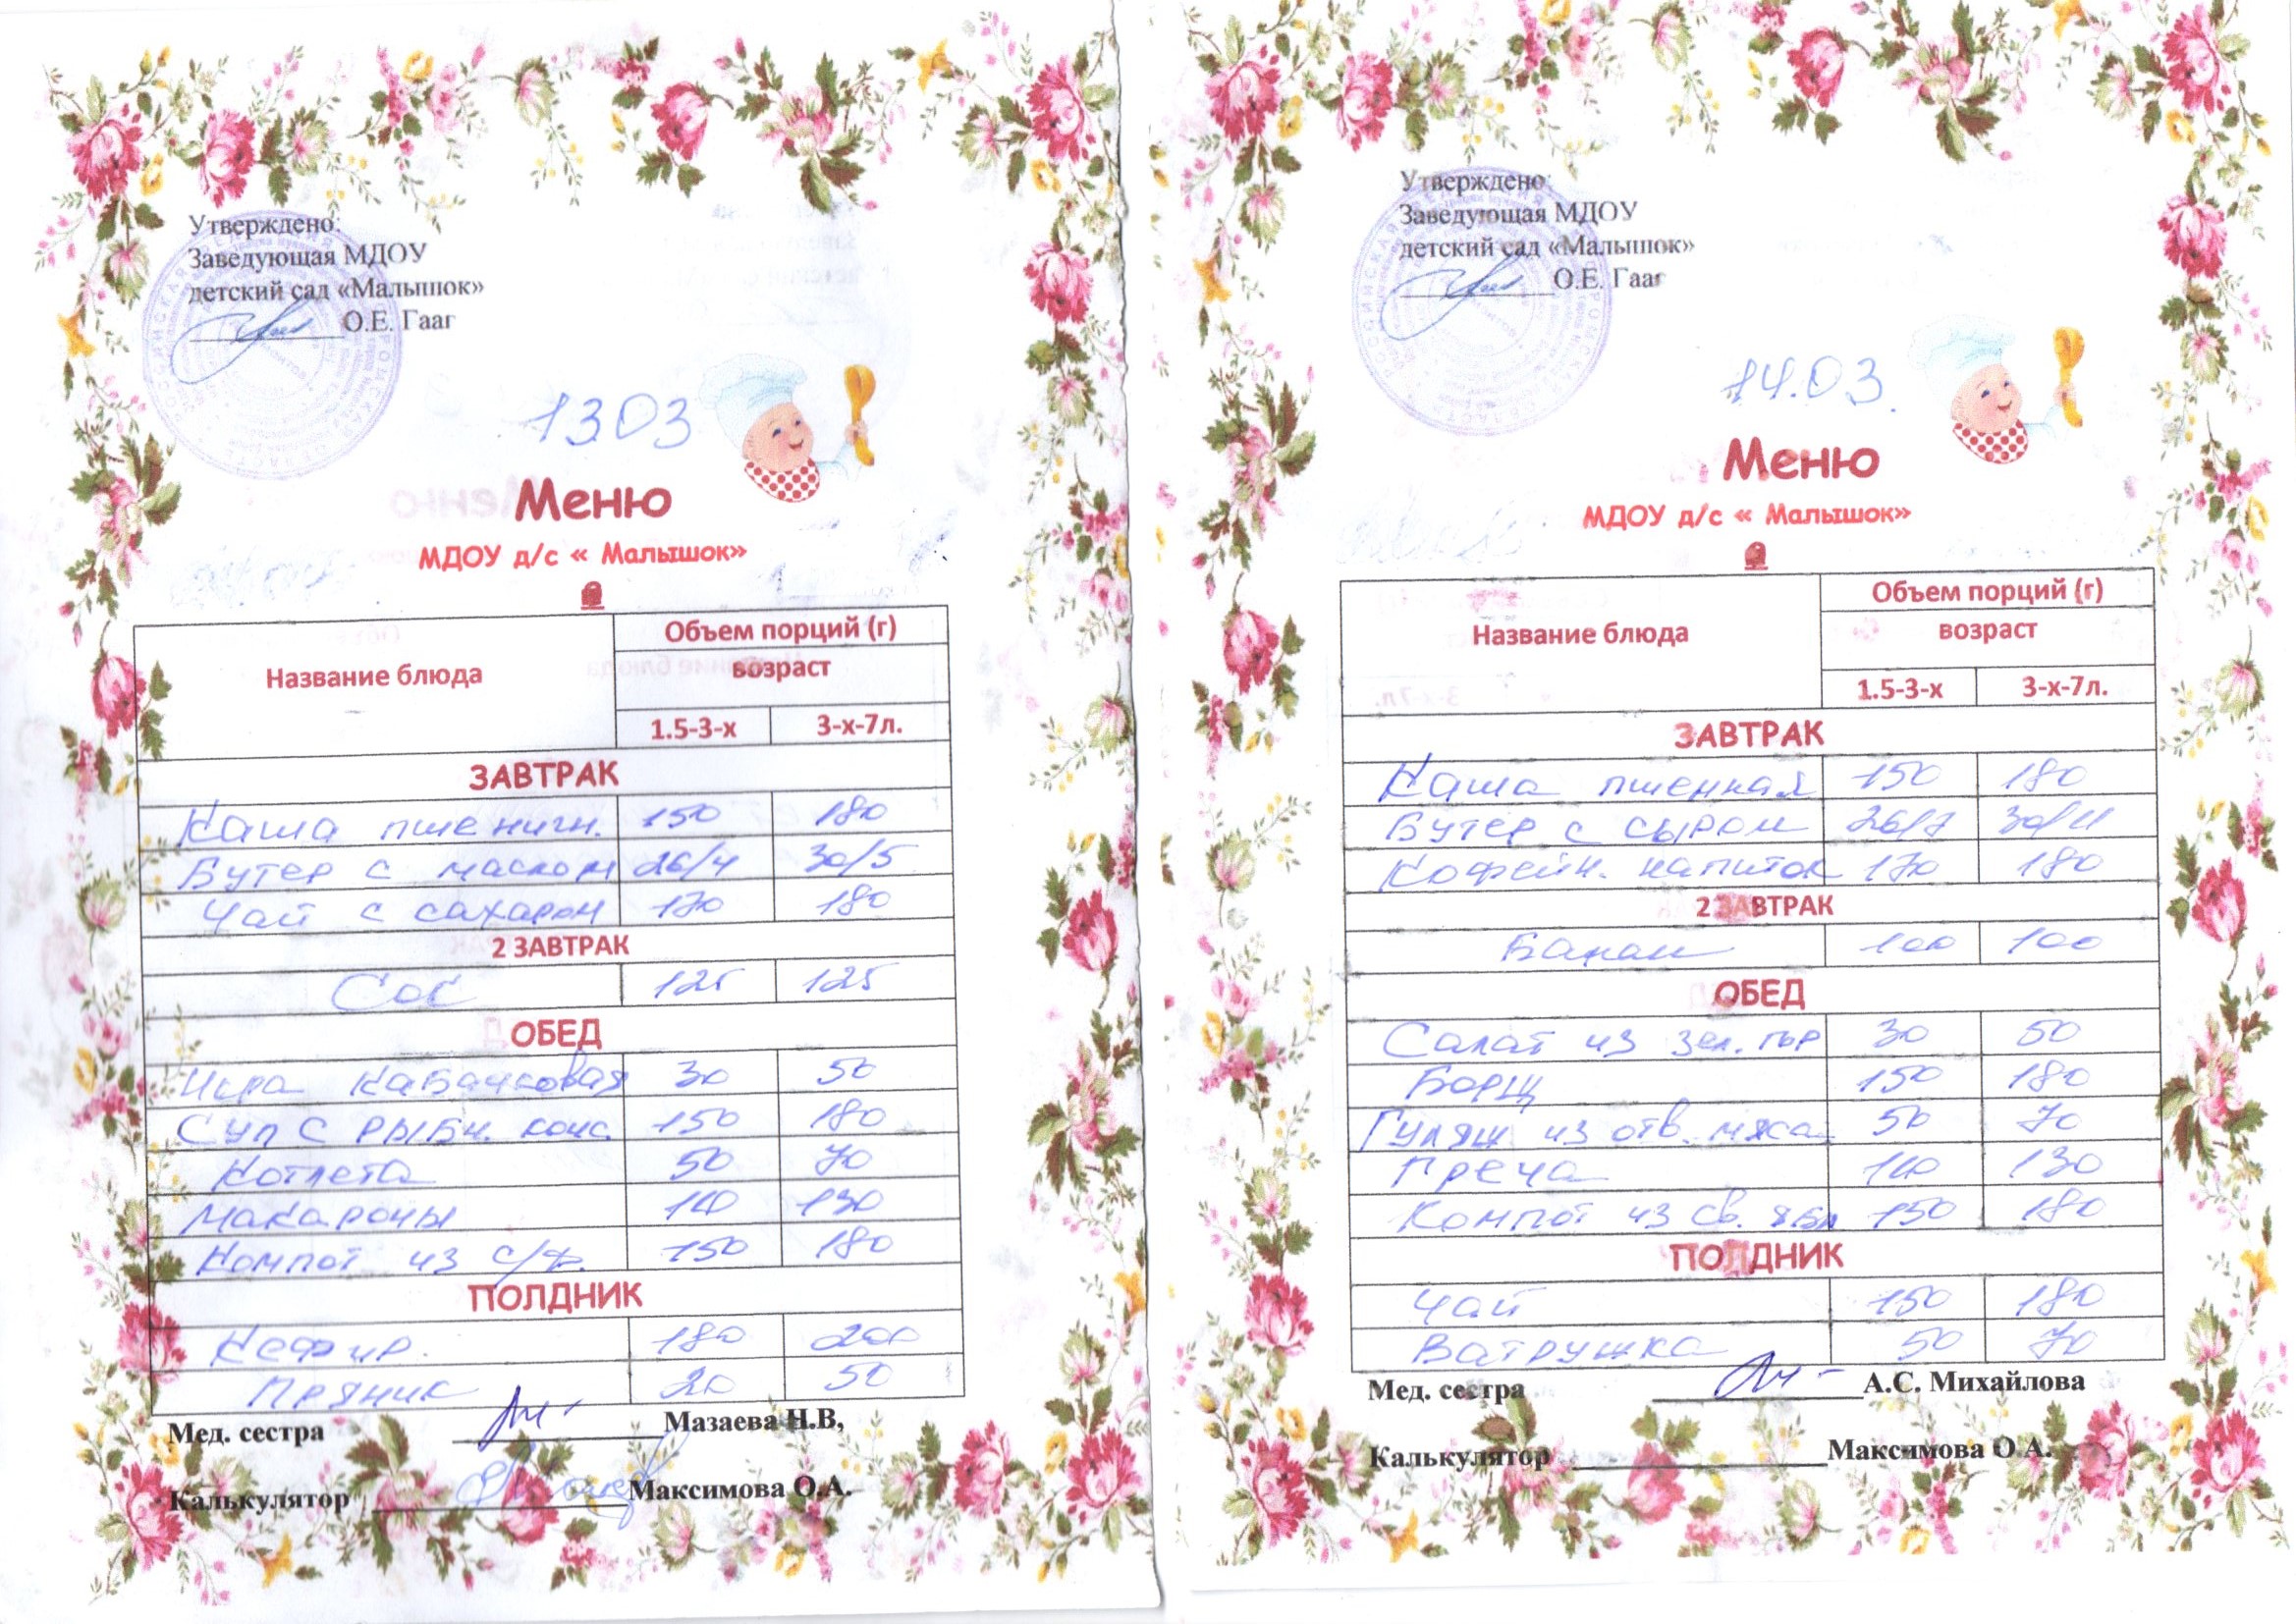 Утверждено:
Заведующая МДОУ
детский сад «Малышок»
О.Е. Гааг
13.03
Меню
МДОУ д/с « Малышок»
Название блюда
Объем порций (г)
возраст
1.5-3-х 3-х-7л.
ЗАВТРАК
Каша пшеничн. 150 180
Бутер с маслом 26/4 30/5
Чай с сахаром 170 180
2 ЗАВТРАК
Сок 125 125
ОБЕД
Икра кабачковая 30 50
Суп с рыбн. конс. 150 180
Котлета 50 70
Макароны 110 130
Компот из с/ф. 150 180
ПОЛДНИК
Кефир. 180 200
Пряник 20 50
Мед. сестра Мазаева Н.В,
Калькулятор Максимова О.А.
Утверждено:
Заведующая МДОУ
детский сад «Малышок»
О.Е. Гааг
14.03.
Меню
МДОУ д/с « Малышок»
Название блюда
Объем порций (г)
возраст
1.5-3-х 3-х-7л.
ЗАВТРАК
Каша пшенная 150 180
Бутер с сыром 26/7 30/11
Кофейн. напиток 170 180
2 ЗАВТРАК
Банан 100 100
ОБЕД
Салат из зел. гор 30 50
Борщ 150 180
Гуляш из отв. мяса 50 70
Греча 110 130
Компот из св. ябл 150 180
ПОЛДНИК
Чай 150 180
Ватрушка 50 70
Мед. сестра А.С. Михайлова
Калькулятор Максимова О.А.